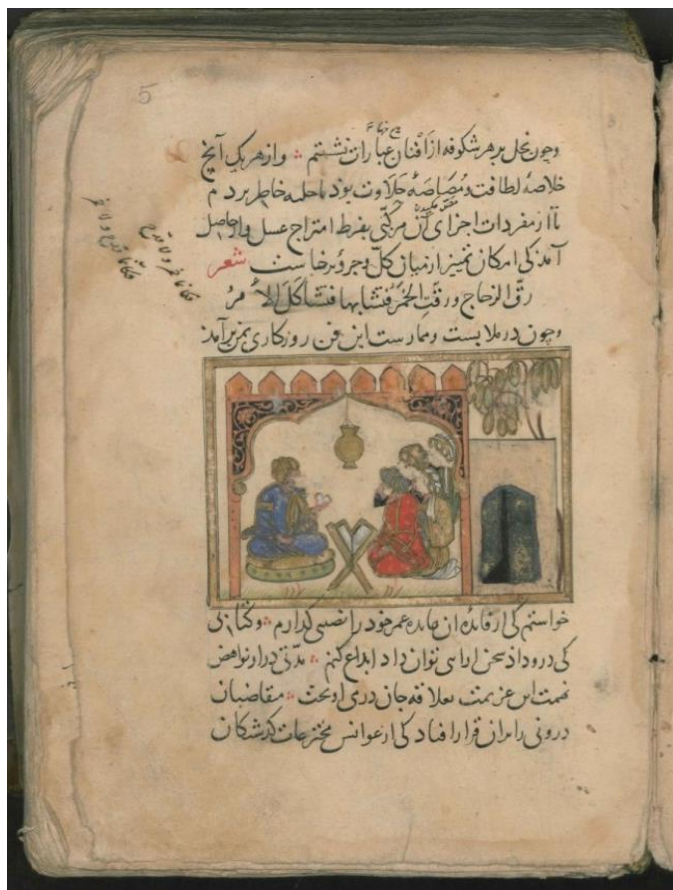 5
و چون نحل بر هر شکوفه از افنان عبارات نشستم و از هر یک آنچ
خلاصهٔ لطافت و مصاصهٔ حلاوت بود با خلیهٔ خاطر بردم
تا از مفردات اجزای آن مرکّبی بفرط امتزاج عسل وار حاصل
آمد کی امکان تمییز از میان کل و جزو برخاست شعر
رق الزجاج ورقت الخمر فتشابها فتشاکل الامر
و چون در ملابست و ممارست این فن روزکاری بمن برآمد
خواستم کی از فایدهٔ آن مایدهٔ عمر خود را نصیبی کذارم و کتابی
کی درو داد سخن ارایی توان داد ابداع کنم مدتی دراز نواهض
نهمت این عزیمت بعلاقهٔ جان در می اویخت متقاضیان
درونی را بران قرار افتاد کی از عوانس مخترعات کذشتکان
فکانما خمر ولا قدح
وکانما قدح ولا خمر